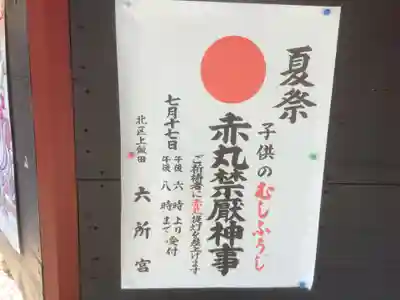 夏祭
子供のむしふうじ
赤丸禁厭神事
ご祈祷者に赤丸提灯を差上げます
七月十七日
午後 六時より
午後 八時まで
受付
北区上飯田
六所宮